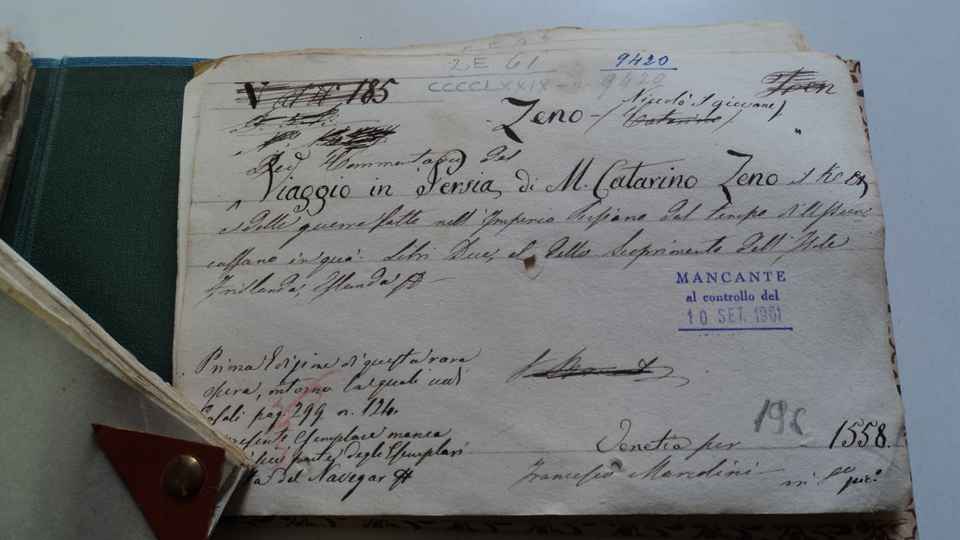 2 E 61
9420
CCCCLXXIX
9420
V 185
Zeno - (Niccolò il giovane)
Dei Commentarj del
Viaggio in Persia di M. Catarino Zeno il K.
e delle guerre fatte nell'Imperio Persiano dal tempo d'Ussun
cassano in quà. Libri Due, e dello Scoprimento dell'Isole
Frislanda, Eslanda
MANCANTE
al controllo del
10 SET. 1961
Prima Edizione di questa rara
opera, intorno la quale vedi
pag. 299 n. 124.
presente Esemplare manca
parte degli Esemplari
del Navegar
198
Venetia per 1558.
Francesco Marcolini in 8º